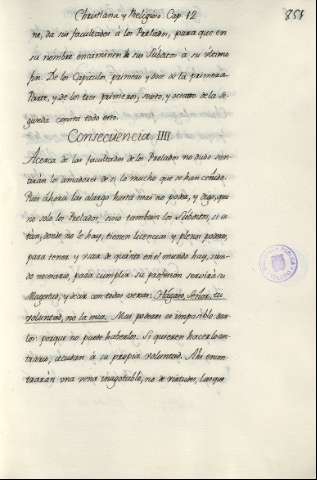 Christiana y Religiosa. Cap. 12
851
ne, da sus facultades à los Prelados, para que en
su nombre encaminen sus Subditos à su ultimo
fin. De los Capitulos, primero y doce de la primera
Parte, y de los tres primeros, sexto, y octavo de la se-
gunda consta todo esto.
Consecuencia IIII.
Acerca de las facultades de los Prelados no dudo sen-
tiràn los amadores de si, lo mucho que se han ceñido.
Pues ahora las alargo hasta mas no poder, y digo, que
no solo los Prelados, sino tambien los Subditos, si es-
tan, donde no le hay, tienen licencia, y pleno poder,
para tener, y usar de quanto en el mundo hay, sien-
do necesario, para cumplir su profesion, servir à su
Magestad, y decir con todas veras: Hagase, Señor, tu
voluntad, no la mia. Mas poderes es imposible dar-
los: porque no puede haberlos. Si quieren hacerlo con-
trario, acudan à su propia voluntad. Ahi encon-
traràn una vena inagotable, no de virtudes, las que